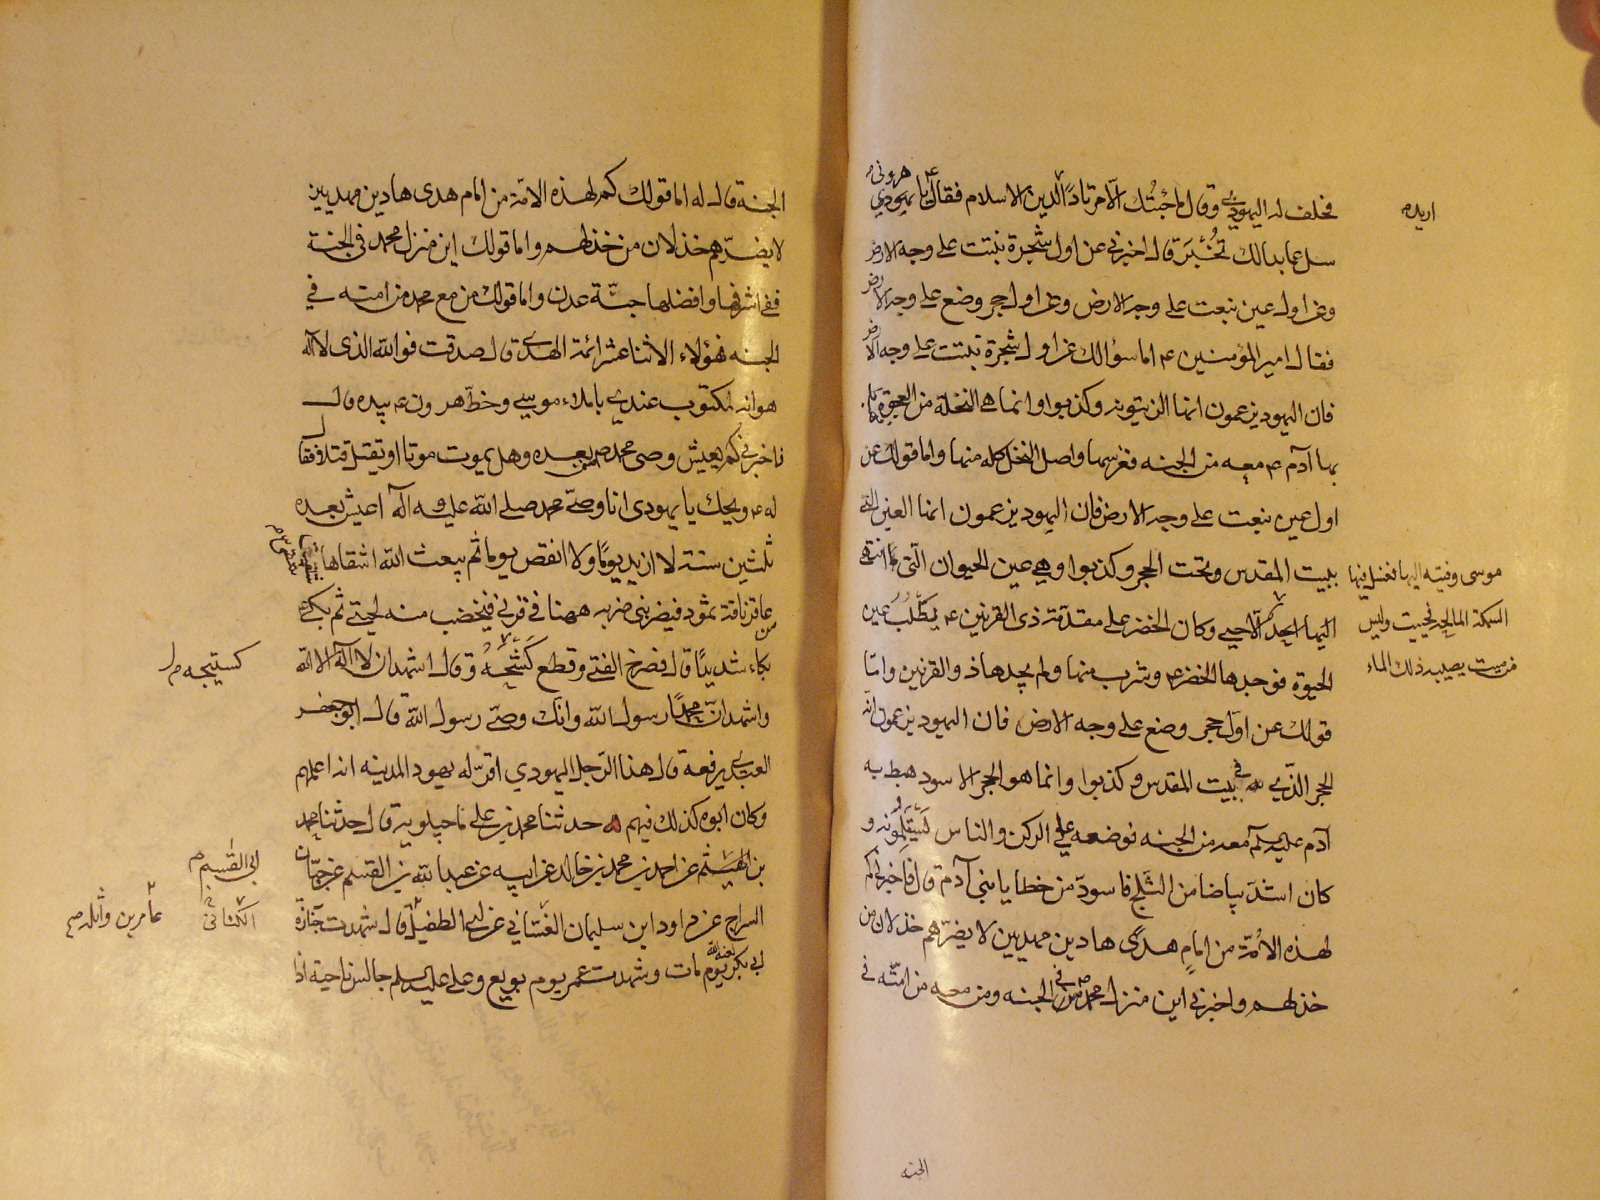 هروني
فحلف له اليهودي وقال ما جئتك الا مرتادا لدين الاسلام فقال يا يهودي
اريد م
سل عما بدا لك تخبر قال اخبرني عن اول شجرة نبتت على وجه الارض
وعن اول عين نبعت على وجه الارض وعن اول حجر وضع على وجه الارض
فقال امير المؤمنين ع اما سؤالك عن اول شجرة نبتت على وجه الارض
فان اليهود يزعمون انها الزيتونة وكذبوا وانما هي النخلة من العجوة هبط
بها آدم ع معه من الجنه فغرسها واصل النخل كله منها واما قولك عن
اول عين نبعت على وجه الارض فان اليهود يزعمون انها العين التي
ببيت المقدس وتحت الحجر وكذبوا وهي عين الحيوان التي ما انتهى
موسى وفتيه اليها فغسل فيها
اليها احد الا حيي وكان الخضر على مقدمة ذي القرنين ع يطلب عين
السمكة المالحة فحييت وليس
الحيوة فوجدها الخضر ع وشرب منها ولم يجدها ذو القرنين واما
من ميت يصيبه ذلك الماء
قولك عن اول حجر وضع على وجه الارض فان اليهود يزعمون انه
الحجر الذي في بيت المقدس وكذبوا وانما هو الحجر الاسود هبط به
آدم عليه السلم معه من الجنه فوضعه على الركن والناس يستلمونه و
كان اشد بياضا من الثلج فاسود من خطايا بني آدم قال فاخبرني كم
لهذه الامّة من امام هدى هادين مهديين لا يضرهم خذلان من
خذلهم واخبرني اين منزل محمد ص في الجنه ومن معه من امته في
الجنه
الجنة قال له اما قولك كم لهذه الامة من امام هدى هادين مهديين
لا يضرهم خذلان من خذلهم واما قولك اين منزل محمد في الجنة
ففي اشرفها وافضلها جنّة عدن واما قولك من مع محمد من امته في
الجنه فهؤلاء الاثنا عشر ائمة الهدى قال صدقت فوالله الذي لا آله
هو انه لمكتوب عندي باملاء موسى وخط هرون ع بيده قال
فاخبرني كم يعيش وصى محمد ص بعده وهل يموت موتا او يقتل قتلا فقال
له ع ويحك يا يهودى انا وصيّ محمد صلى الله عليه وآله اعيش بعده
ثلثين سنة لا ازيد يوما ولا انقص يوما ثم يبعث الله اشقاها
عاقر ناقة ثمود فيضربني ضربه ههنا في قرني فيخضب منه لحيتي ثم بكى ع
بكاء شديدا قال فصرخ الفتى وقطع كشحه وقال اشهد ان لا آله الا الله
كستيجه م
واشهد انّ محمدا رسول الله وانك وصيّ رسول الله قال ابو جعفر
العبدي يرفعه قال هذا الرجل اليهودي اقرّ له يهود المدينه انه اعلمهم
وكان ابوه كذلك فيهم حدثنا محمد بن على ماجيلويه قال حدثنا محمد
بن الهيثم عن احمد بن محمد بن خالد عن ابيه عن عبد الله بن القسم عن حيّان
ابي القسم م
السراج عن داود ابن سليمان الغسّاني عن ابي الطفيل قال شهدت جنازة
الكناني
عامر بن واثله م
ابي بكر يوم مات وشهدت عمر يوم بويع وعلي عليه السلم جالس ناحية اذا